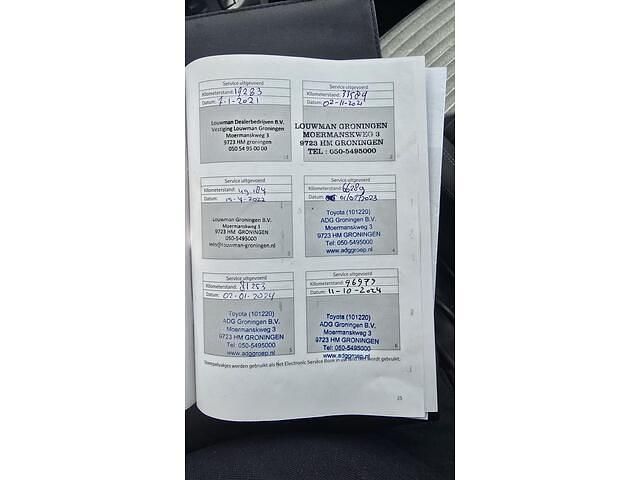 Service uitgevoerd
Kilometerstand: 19283
Datum: 7-1-2021
Louwman Dealerbedrijven B.V.
Vestiging Louwman Groningen
Moermanskweg 3
9723 HM groningen
050 54 95 00 00
1
Service uitgevoerd
Kilometerstand:
Datum: 02-11-2021
LOUWMAN GRONINGEN
MOERMANSKWEG 3
9723 HM GRONINGEN
TEL : 050-5495000
Service uitgevoerd
Kilometerstand: 49.184
Datum:
Louwman Groningen B.V.
Moermanskweg 3
9723 HM GRONINGEN
050-5495000
3
Service uitgevoerd
Kilometerstand: 66289
Datum: 01/07/2023
Toyota (101220)
ADG Groningen B.V.
Moermanskweg 3
9723 HM GRONINGEN
Tel: 050-5495000
www.adggroep.nl
4
Service uitgevoerd
Kilometerstand: 81253
Datum: 02-01-2024
Toyota (101220)
ADG Groningen B.V.
Moermanskweg 3
9723 HM GRONINGEN
Tel: 050-5495000
www.adggroep.nl
5
Service uitgevoerd
Kilometerstand: 96977
Datum: 11-10-2024
Toyota (101220)
ADG Groningen B.V.
Moermanskweg 3
9723 HM GRONINGEN
Tel: 050-5495000
www.adggroep.nl
6
Stempelvakjes worden gebruikt als het Electronic Service Book in uw land niet wordt gebruikt.
25